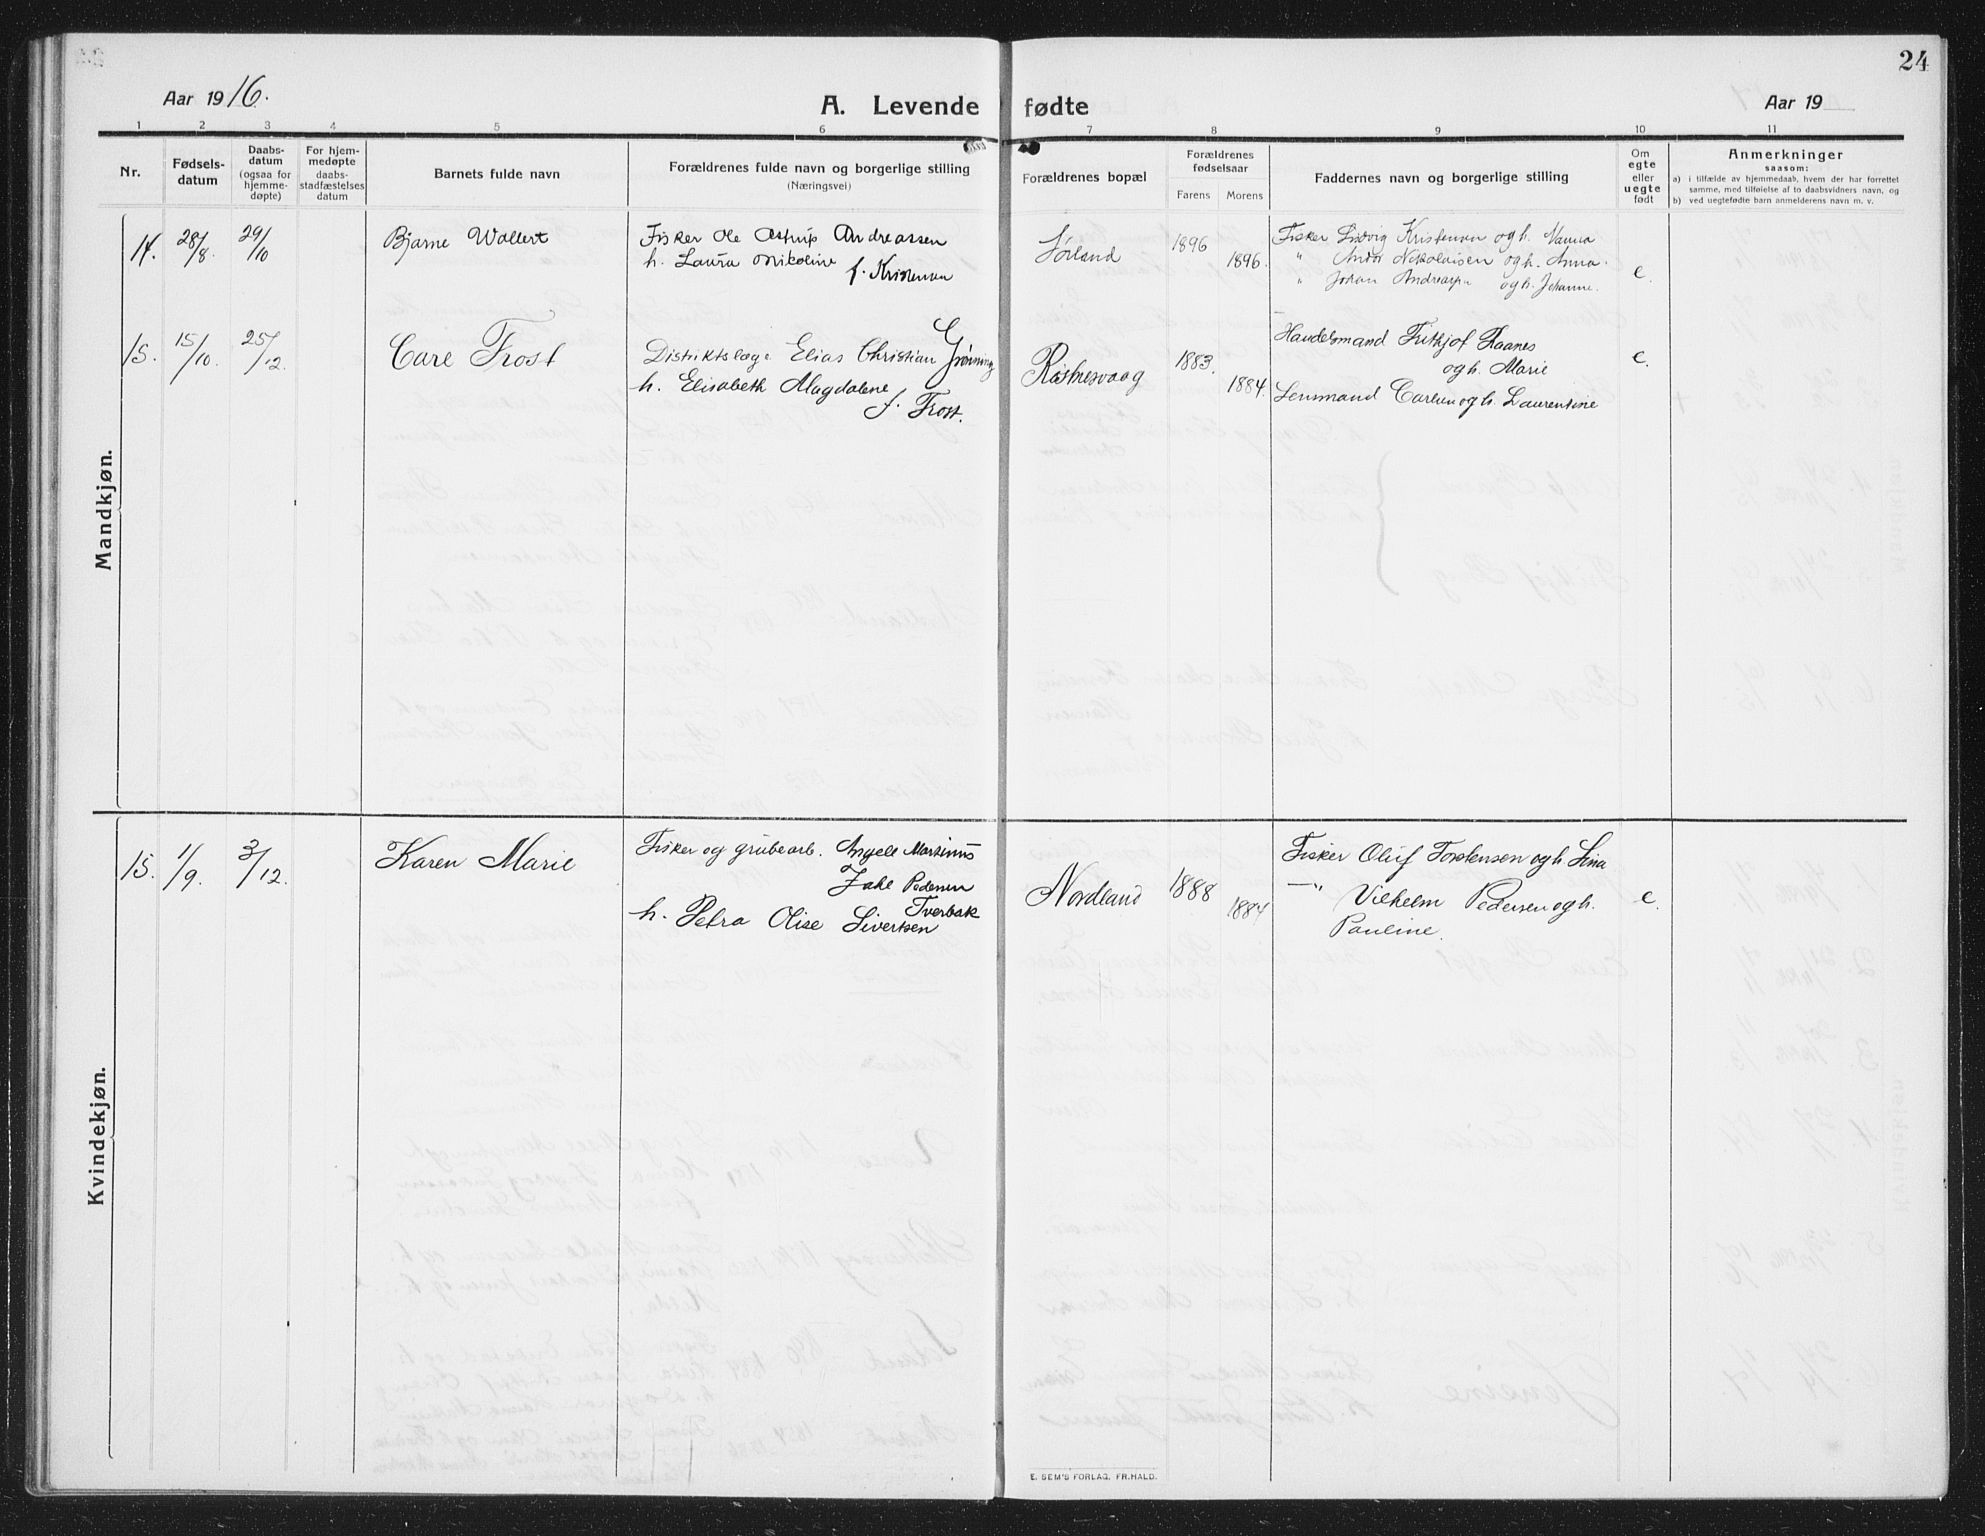 24
Aar 1916.
A. Levende fødte
Aar 19
1 2 3 4 5 6 7 8 9 10 11
Nr.
Fødsels-
datum
Daabs-
datum
(ogsaa for
hjemme-
døpte)
For hjem-
medøpte
daabs-
stadfæstelses
datum
Barnets fulde navn
Forældrenes fulde navn og borgerlige stilling
(Næringsvei)
Forældrenes bopæl
Forældrenes
fødselsaar
Farens Morens
Faddernes navn og borgerlige stilling
Om
egte
eller
uegte
født
Anmerkninger
saasom:
a) i tilfælde av hjemmedaab, hvem der har forrettet
samme, med tilføielse af to daabsvidners navn, og
b) ved uegtefødte barn anmelderens navn m. v.
Mandkjøn.
14. 28/8. 29/10 Bjarne Wollert
Fisker Ole Astrup Andreassen
h. Laura Nikoline f. Kristensen
Sørland 1896 1896.
Fisker Ludvig Kristensen og h. Nanna
" Andor Nikolaisen og h. Anna.
" Johan Andreassen og h. Johanne.
e.
15. 15/10. 25/12. Care Frost
Distriktslæge Elias Christian Grønning
h. Elisabeth Magdalene
f. Frost.
Røstnesvaag 1883. 1884.
Handelsmand Frithjof Raanes
og h. Marie
Lensmand Carlsen og h. Laurentine
e.
Kvindekjøn.
15. 1/9. 3/12. Karen Marie
Fisker og grubearb. Angell Martinus
Johl Pedersen
Tverbak
h. Petra Olise Sivertsen
Nordland 1888 1884
Fisker Oluf Torstensen og h. Lina
—"— Vilhelm Pedersen og h.
Pauline.
e.
E. SEM'S FORLAG, FR.HALD.